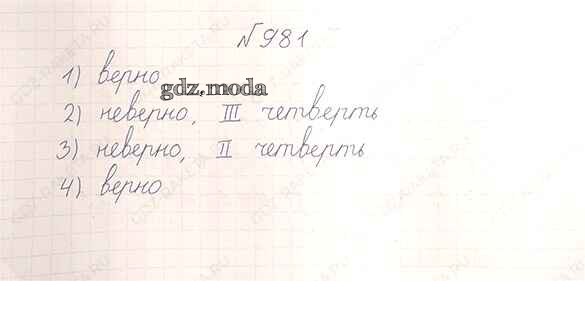 №981
1) верно
gdz.moda
2) неверно, III четверть
3) неверно, II четверть
4) верно